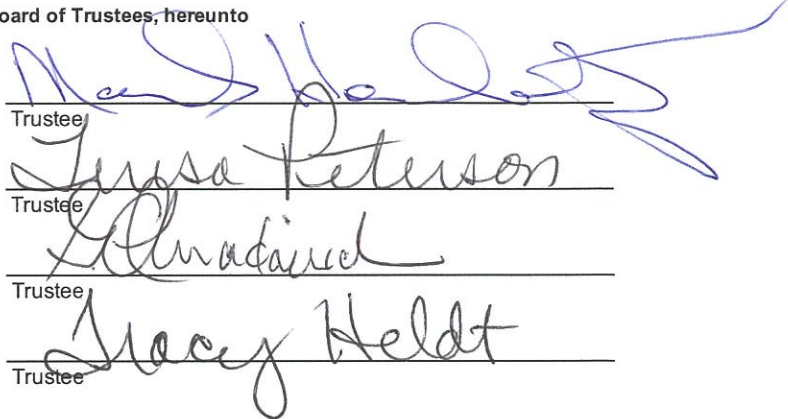 oard of Trustees, hereunto
Trustee
Teresa Peterson
Trustee
Trustee
Tracy Heldt
Trustee